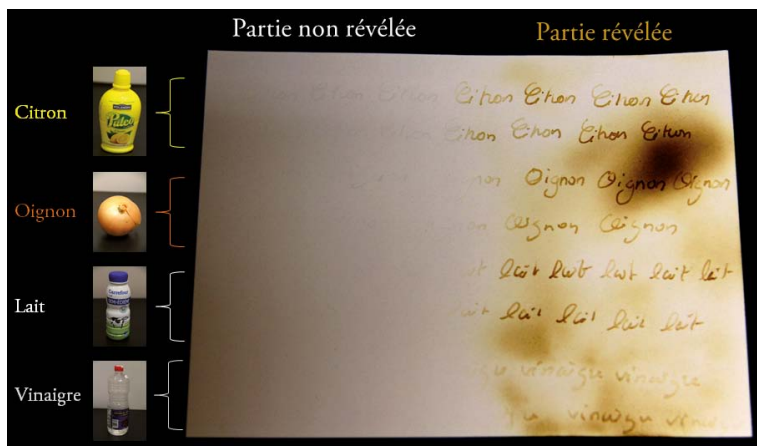 Partie non révélée Partie révélée
Citron
Pulco
Citron Citron Citron Citron Citron Citron
Citron Citron Citron Citron
Oignon
Oignon Oignon Oignon
Oignon Oignon
Lait
lait lait lait lait lait
lait lait lait lait
Vinaigre
vinaigre vinaigre
vinaigre